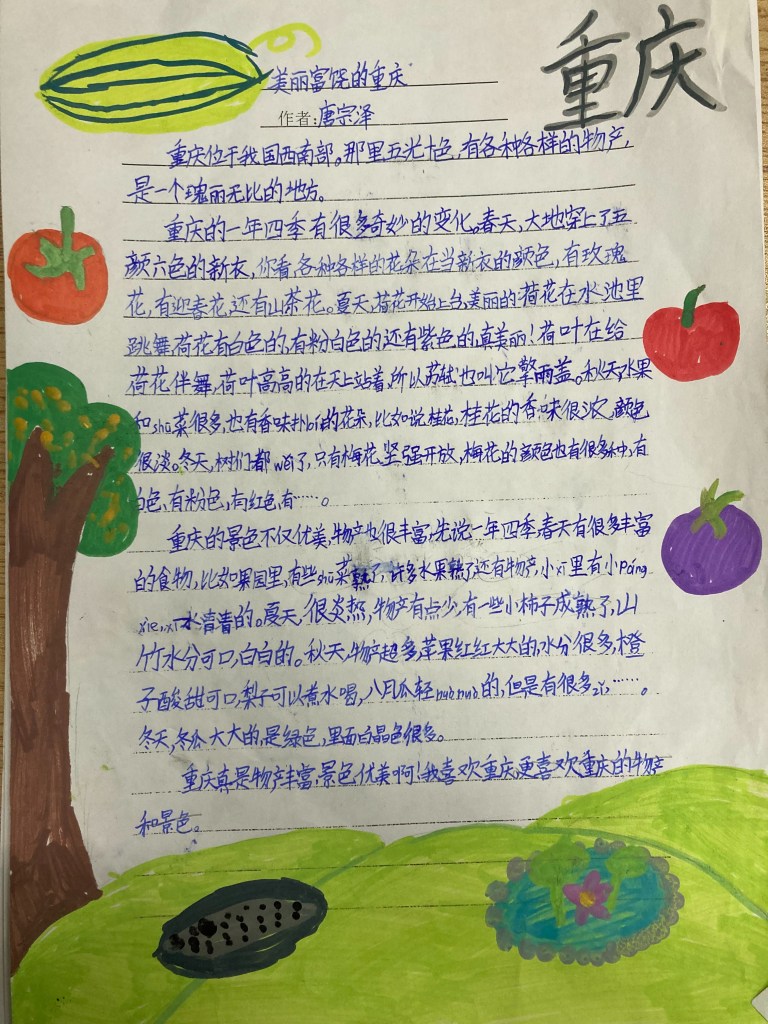 重庆
美丽富饶的重庆
作者:唐宗泽
重庆位于我国西南部。那里五光十色,有各种各样的物产,
是一个瑰丽无比的地方。
重庆的一年四季有很多奇妙的变化。春天,大地穿上了五
颜六色的新衣,你看,各种各样的花朵在当新衣的颜色,有玫瑰
花,有迎春花,还有山茶花。夏天,荷花开始上台,美丽的荷花在水池里
跳舞,荷花有白色的,有粉白色的还有紫色的,真美丽!荷叶在给
荷花伴舞,荷叶高高的在天上站着,所以苏轼也叫它擎雨盖。秋天,水果
和shū菜很多,也有香味扑bí的花朵,比如说桂花,桂花的香味很浓,颜色
很淡。冬天,树们都wěi了,只有梅花坚强开放,梅花的颜色也有很多种,有
白色,有粉色,有红色,有……。
重庆的景色不仅优美,物产也很丰富,先说一年四季,春天有很多丰富
的食物,比如果园里,有些shū菜熟了,许多水果熟了还有物产,小xī里有小páng
xiè,xī水清清的。夏天,很炎热,物产有点少,有一些小柿子成熟了,山
竹水分可口,白白的。秋天,物产超多,苹果红红大大的,水分很多,橙
子酸甜可口,梨子可以煮水喝,八月瓜轻nuò nuò的,但是有很多zǐ,……。
冬天,冬瓜大大的,是绿色,里面白晶色很多。
重庆真是物产丰富,景色优美啊!我喜欢重庆,更喜欢重庆的物产
和景色。